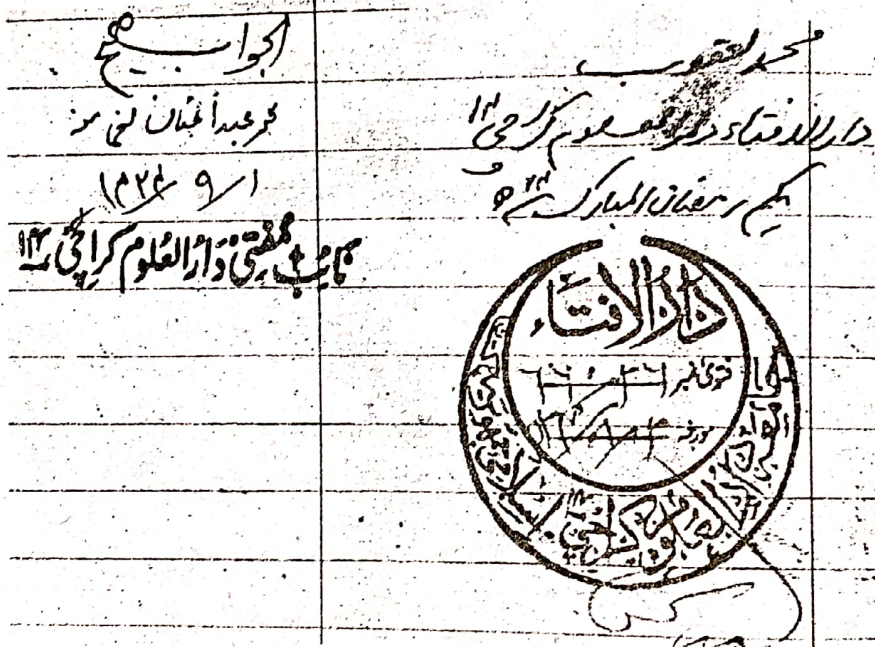 محمد یعقوب
دارالافتاء دارالعلوم کراچی ۱۴
یکم رمضان المبارک ۲۴ھ
الجواب صحیح
محمد عبدالمنان عفی عنہ
۱/ ۹/ ۱۴۲۴
نائب مفتی دارالعلوم کراچی ۱۴
دارالافتاء
فتویٰ نمبر
مورخہ
جامعہ دارالعلوم کراچی